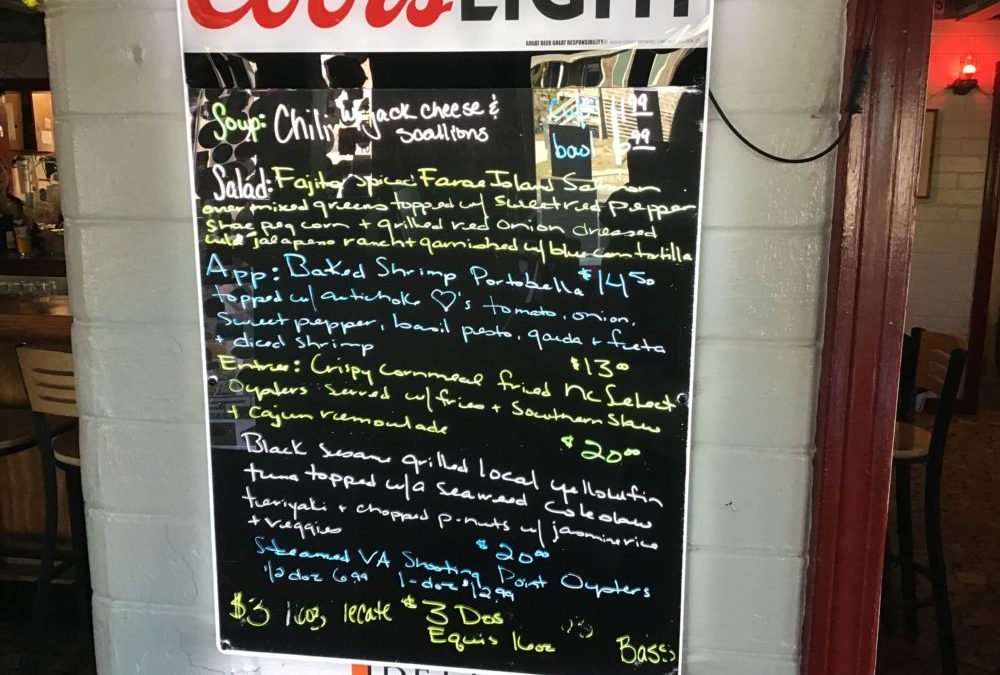 Coors LIGHT
GREAT BEER GREAT RESPONSIBILITY
Soup: Chili w/ jack cheese &
scallions
Cup
99
bowl
99
Salad: Fajita Spiced Faroe Island Salmon
over mixed greens topped w/ sweet red pepper
corn + grilled red onion dressed
jalapeno ranch + garnished w/ blue corn tortilla
App: Baked Shrimp Portobella $14.50
topped w/ artichoke ♡'s tomato, onion,
sweet pepper, basil pesto, gouda + feta
+ diced shrimp
$13.00
Entree: Crispy cornmeal fried NC Select
Oysters served w/ fries + Southern Slaw
+ Cajun remoulade
$20.00
Black Sesame grilled local yellowfin
tuna topped w/ a seaweed coleslaw
teriyaki + chopped p-nuts w/ jasmine rice
+ veggies
$20.00
Steamed VA Shooting Point Oysters
1/2 doz 6.99 1-doz $12.99
$3 $3 Dos
Equis 16oz
Bass